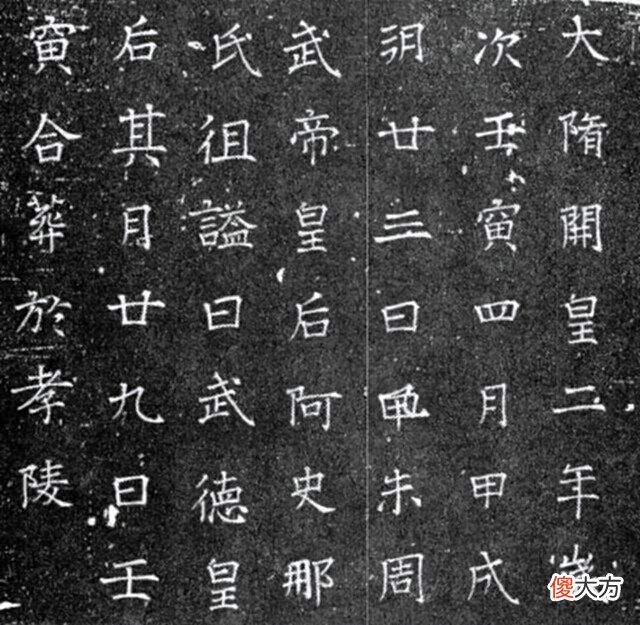 大隋開皇二年歲
次壬寅四月甲戌
朔廿三日甲未周
武帝皇后阿史那
氏徂謚曰武德皇
后其月廿九日壬
寅合葬於孝陵
傻大方